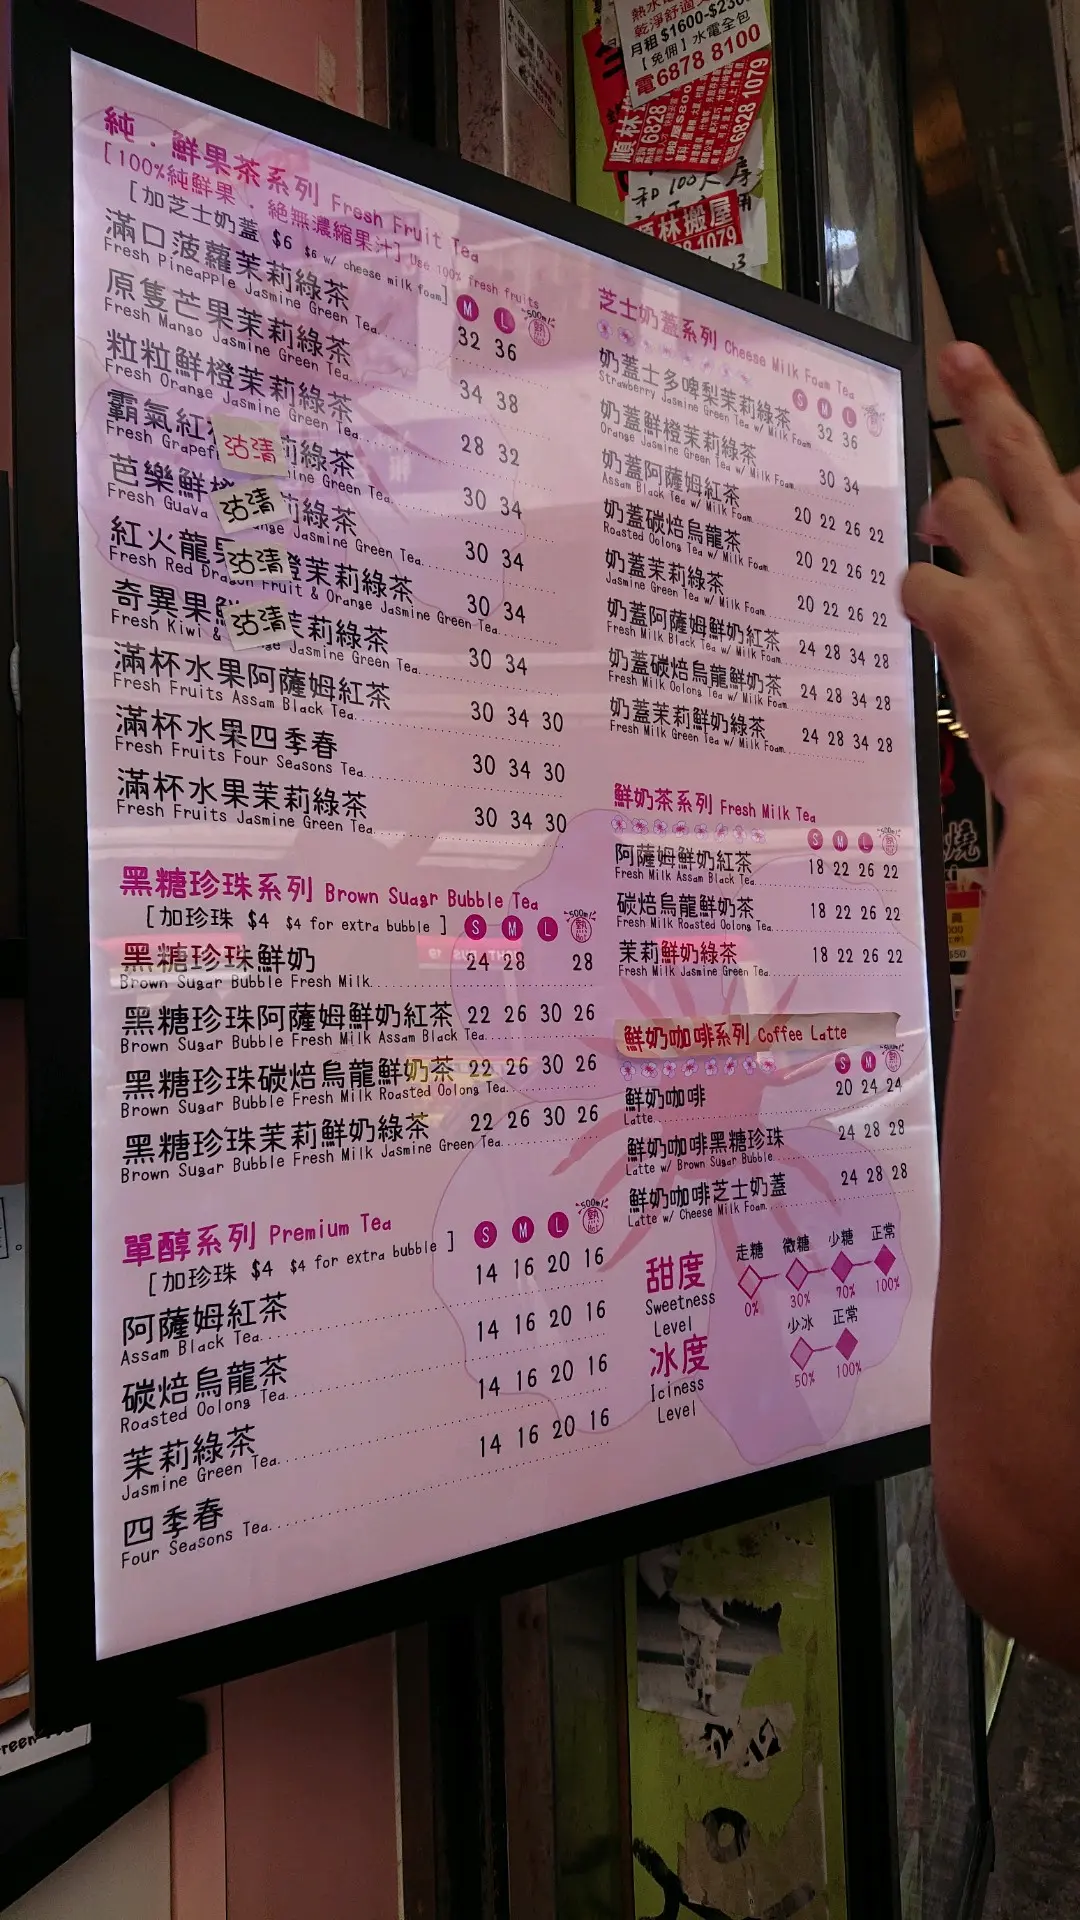 乾淨舒適
月租$1600-$230
【免佣】水電全包
電6878 8100
順林搬屋
6828 1079
純.鮮果茶系列 Fresh Fruit Tea
[100%純鮮果.絕無濃縮果汁] Use 100% fresh fruits
[加芝士奶蓋 $6 $6 w/ cheese milk foam]
M L 500ml 熱
滿口菠蘿茉莉綠茶 32 36
Fresh Pineapple Jasmine Green Tea
原隻芒果茉莉綠茶 34 38
Fresh Mango Jasmine Green Tea
粒粒鮮橙茉莉綠茶 28 32
Fresh Orange Jasmine Green Tea
霸氣紅 沽清 莉綠茶 30 34
Fresh Grapef ine Green Tea
芭樂鮮橙 沽清 莉綠茶 30 34
Fresh Guava ange Jasmine Green Tea
紅火龍果 沽清 橙茉莉綠茶 30 34
Fresh Red Dragon Fruit & Orange Jasmine Green Tea
奇異果鮮 沽清 茉莉綠茶 30 34
Fresh Kiwi & ge Jasmine Green Tea
滿杯水果阿薩姆紅茶 30 34 30
Fresh Fruits Assam Black Tea
滿杯水果四季春 30 34 30
Fresh Fruits Four Seasons Tea
滿杯水果茉莉綠茶 30 34 30
Fresh Fruits Jasmine Green Tea
黑糖珍珠系列 Brown Sugar Bubble Tea
[加珍珠 $4 $4 for extra bubble] S M L 500ml 熱 Hot
黑糖珍珠鮮奶 24 28 28
Brown Sugar Bubble Fresh Milk
黑糖珍珠阿薩姆鮮奶紅茶 22 26 30 26
Brown Sugar Bubble Fresh Milk Assam Black Tea
黑糖珍珠碳焙烏龍鮮奶茶 22 26 30 26
Brown Sugar Bubble Fresh Milk Roasted Oolong Tea
黑糖珍珠茉莉鮮奶綠茶 22 26 30 26
Brown Sugar Bubble Fresh Milk Jasmine Green Tea
單醇系列 Premium Tea
[加珍珠 $4 $4 for extra bubble] S M L 500ml 熱 Hot
阿薩姆紅茶 14 16 20 16
Assam Black Tea
碳焙烏龍茶 14 16 20 16
Roasted Oolong Tea
茉莉綠茶 14 16 20 16
Jasmine Green Tea
四季春 14 16 20 16
Four Seasons Tea
芝士奶蓋系列 Cheese Milk Foam Tea
S M L
奶蓋士多啤梨茉莉綠茶 32 36
Strawberry Jasmine Green Tea w/ Milk Foam
奶蓋鮮橙茉莉綠茶 30 34
Orange Jasmine Green Tea w/ Milk Foam
奶蓋阿薩姆紅茶 20 22 26 22
Assam Black Tea w/ Milk Foam
奶蓋碳焙烏龍茶 20 22 26 22
Roasted Oolong Tea w/ Milk Foam
奶蓋茉莉綠茶 20 22 26 22
Jasmine Green Tea w/ Milk Foam
奶蓋阿薩姆鮮奶紅茶 24 28 34 28
Fresh Milk Black Tea w/ Milk Foam
奶蓋碳焙烏龍鮮奶茶 24 28 34 28
Fresh Milk Oolong Tea w/ Milk Foam
奶蓋茉莉鮮奶綠茶 24 28 34 28
Fresh Milk Green Tea w/ Milk Foam
鮮奶茶系列 Fresh Milk Tea
S M L 500ml 熱
阿薩姆鮮奶紅茶 18 22 26 22
Fresh Milk Assam Black Tea
碳焙烏龍鮮奶茶 18 22 26 22
Fresh Milk Roasted Oolong Tea
茉莉鮮奶綠茶 18 22 26 22
Fresh Milk Jasmine Green Tea
鮮奶咖啡系列 Coffee Latte
S M 500ml 熱 Hot
鮮奶咖啡 20 24 24
Latte
鮮奶咖啡黑糖珍珠 24 28 28
Latte w/ Brown Sugar Bubble
鮮奶咖啡芝士奶蓋 24 28 28
Latte w/ Cheese Milk Foam
甜度 走糖 微糖 少糖 正常
Sweetness Level 0% 30% 70% 100%
冰度 少冰 正常
Iciness Level 50% 100%
燒